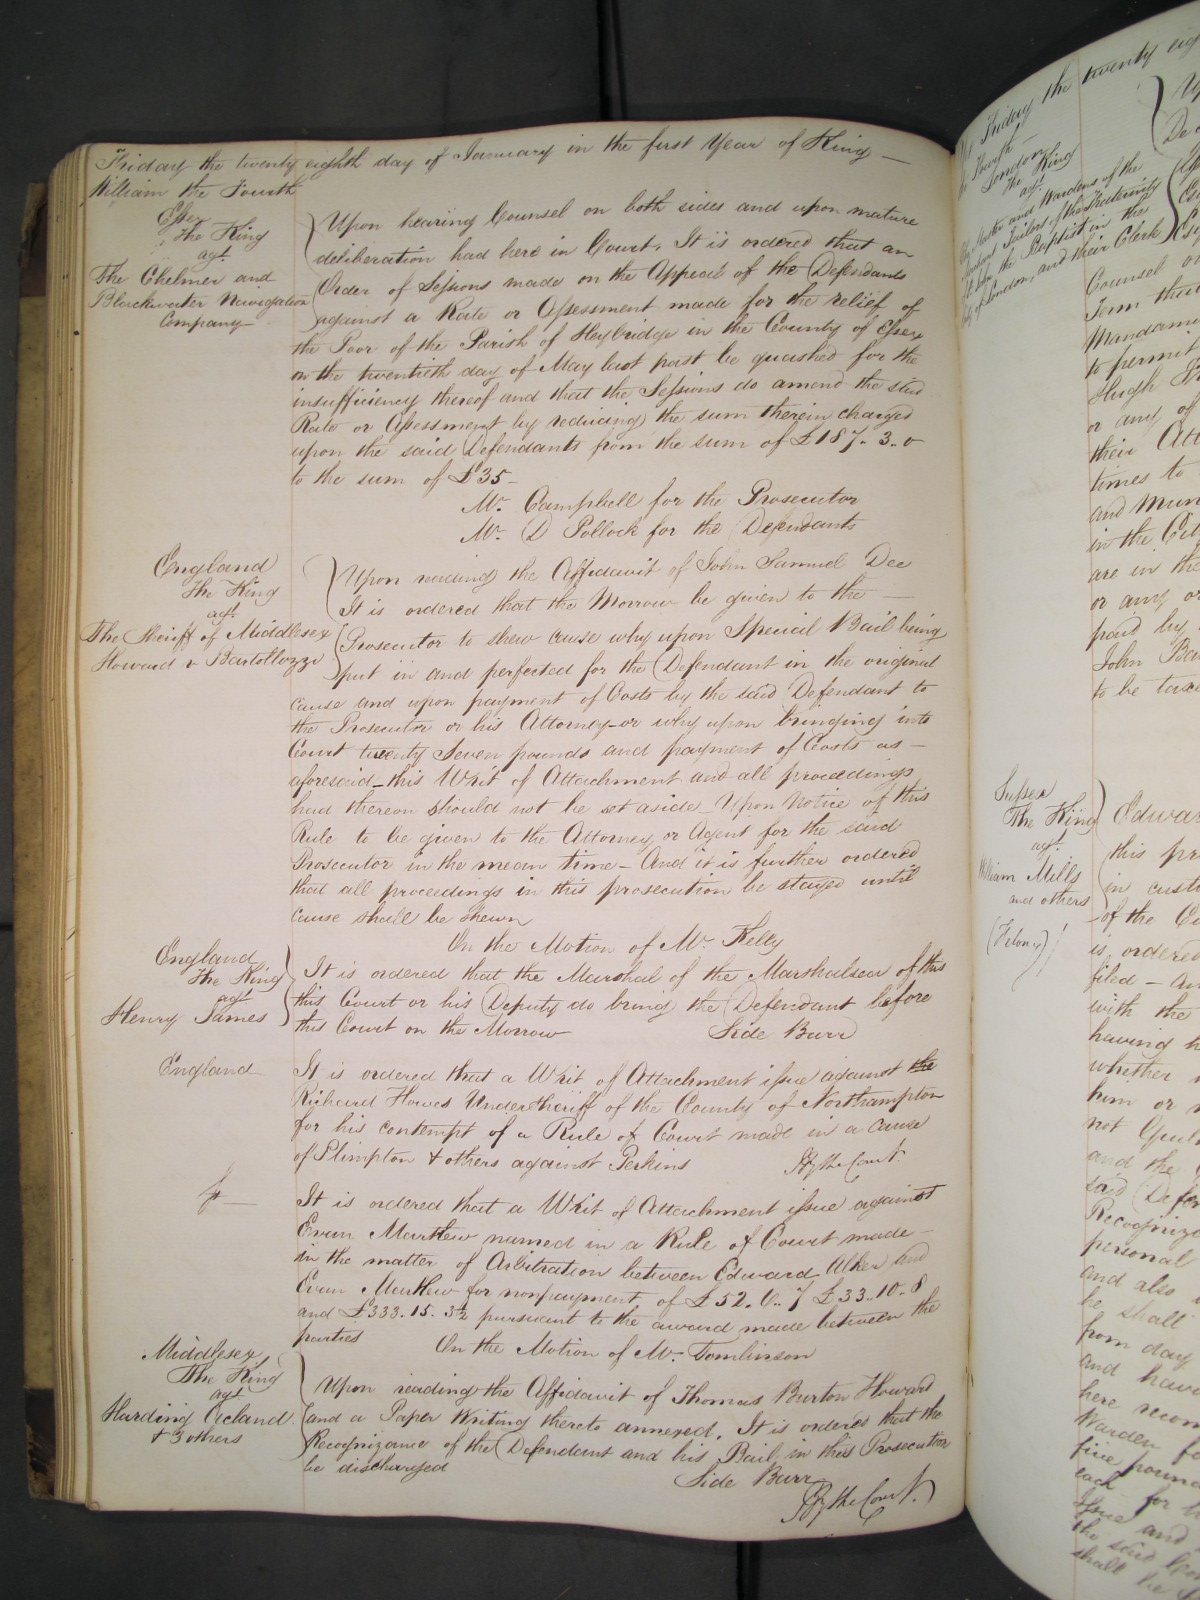 Friday the twenty eighth day of January in the first Year of King —
William the Fourth
Essex
The King
agt.
The Chelmer and
Blackwater Navigation
Company
Upon hearing Counsel on both sides and upon mature
deliberation had here in Court, It is ordered that an
Order of Sessions made on the Appeal of the Defendants
against a Rate or Assessment made for the relief of
the Poor of the Parish of Heybridge in the County of Essex
on the twentieth day of May last past be quashed for the
insufficiency thereof and that the Sessions do amend the said
Rate or Assessment by reducing the sum therein charged
upon the said Defendants from the sum of £187. 3.. 0
to the sum of £35 -
Mr. Campbell for the Prosecutor
Mr. D Pollock for the Defendants
England
The King
agt.
The Sheriff of Middlesex
Howard v Bartollozzi
Upon reading the Affidavit of John Samuel Dee
It is ordered that the Morrow be given to the —
Prosecutor to shew cause why upon Special Bail being
put in and perfected for the Defendant in the original
cause and upon payment of Costs by the said Defendant to
the Prosecutor or his Attorney - or why upon bringing into
Court twenty Seven pounds and payment of Costs as —
aforesaid - this Writ of Attachment and all proceedings
had thereon should not be set aside Upon Notice of this
Rule to be given to the Attorney or Agent for the said
Prosecutor in the mean time - And it is further ordered
that all proceedings in this prosecution be stayed until
cause shall be shewn
On the Motion of Mr. Kelly
England
The King
agt
Henry James
It is ordered that the Marshal of the Marshalsea of this
this Court or his Deputy do bring the Defendant before
this Court on the Morrow Side Barr
England
It is ordered that a Writ of Attachment issue against the
Richard Howes Undersheriff of the County of Northampton
for his contempt of a Rule of Court made in a cause
of Plimpton & others against Perkins By the Court.
It is ordered that a Writ of Attachment issue against
Evan Marthew named in a Rule of Court made —
in the matter of Arbitration between Edward Alker and
Evan Marthew for nonpayment of £52. 0.. 7 £33.. 10.. 8
and £333. 15. 3½ pursuant to the award made between the
parties On the Motion of Mr. Tomlinson
Middlesex
The King
agt
Harding Acland
& 3 others
Upon reading the Affidavit of Thomas Burton Howard
and a Paper Writing thereto annexed, It is ordered that the
Recognizance of the Defendant and his Bail in this Prosecution
be discharged
Side Barr
By the Court.
Friday the twenty
London
The King
agt.
The Master and Wardens of the
Taylors of the Fraternity
St John the Baptist in the
City of London, and their Clerk
Counsel
Term that
Mandamus
to permit
Hugh
or any of
their
times to
and
in the
are in the
or any or
paid by
John
to be
Sussex
The King
agt.
William Mills
and others
(Felony)
this
in
of the
is ordered
filed -
with the
having
whether
him or
not
and the
said
personal
and also
he shall
from day
and have
here
Warden
five pound
each for
Issue and
the said
shall be